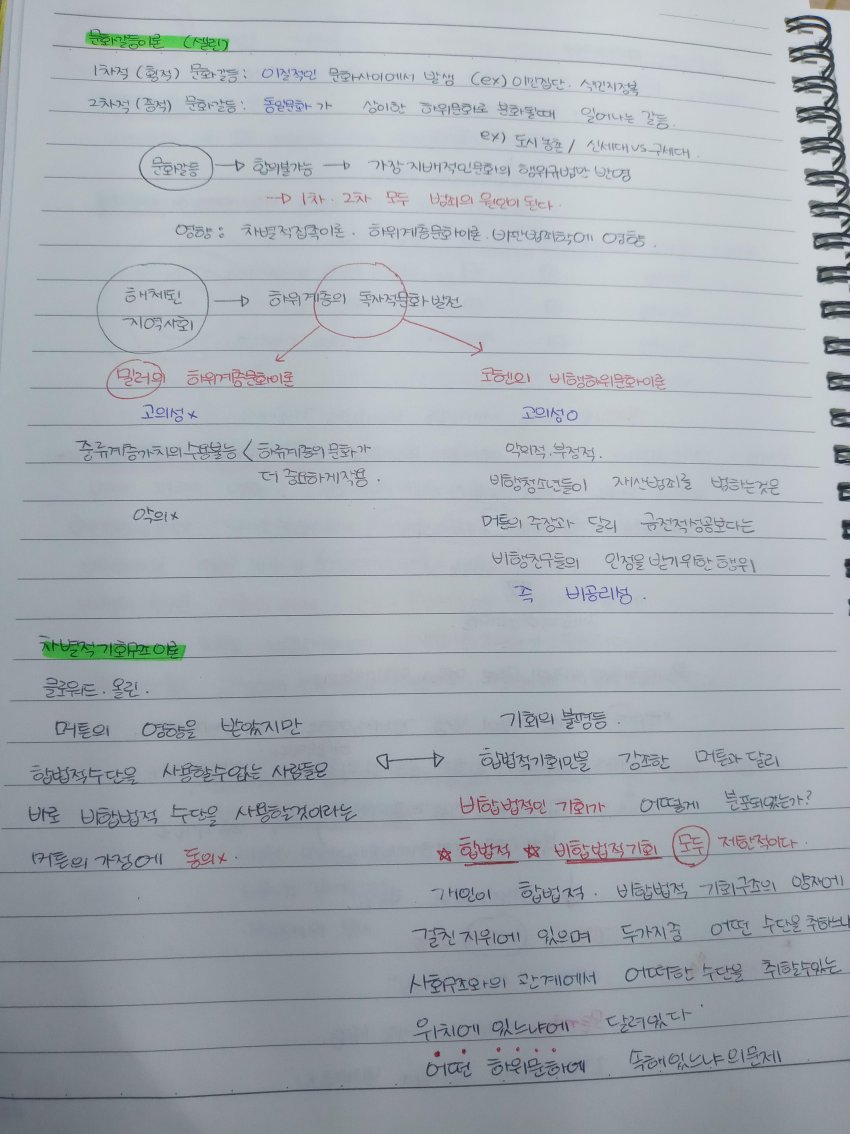 문화갈등이론 (셀린)
1차적 (횡적) 문화갈등: 이질적인 문화사이에서 발생 (ex) 이민집단. 식민지정복
2차적 (종적) 문화갈등: 동일문화가 상이한 하위문화로 분화될때 일어나는 갈등.
ex) 도시농촌 / 신세대 vs 구세대.
문화갈등 → 합의불가능 → 가장 지배적인문화의 행위규범만 반영
→ 1차. 2차 모두 범죄의 원인이 된다.
영향: 차별적접촉이론. 하위계층문화이론. 비판범죄학에 영향.
해체된
지역사회 → 하위계층의 독자적문화 발전
밀러의 하위계층문화이론
고의성 x
중류계층가치의 수용불능 < 하류계층의 문화가
더 중요하게작용.
악의 x
코헨의 비행하위문화이론
고의성 O
악의적. 부정적.
비행청소년들이 재산범죄를 범하는것은
머튼의 주장과 달리 금전적성공보다는
비행친구들의 인정을 받기위한 행위
즉 비공리성.
차별적기회구조이론
클로워드. 올린.
머튼의 영향을 받았지만
합법적수단을 사용할수없는 사람들은
바로 비합법적 수단을 사용할것이라는
머튼의 가정에 동의 x.
기회의 불평등.
↔ 합법적기회만을 강조한 머튼과 달리
비합법적인 기회가 어떻게 분포되었는가?
☆ 합법적 ☆ 비합법적기회 모두 제한적이다.
개인이 합법적. 비합법적 기회구조의 양자에
걸친 지위에 있으며 두가지중 어떤 수단을 취하느냐
사회구조와의 관계에서 어떠한 수단을 취할수있는
위치에 있느냐에 달려있다.
어떤 하위문화에 속해있느냐의문제